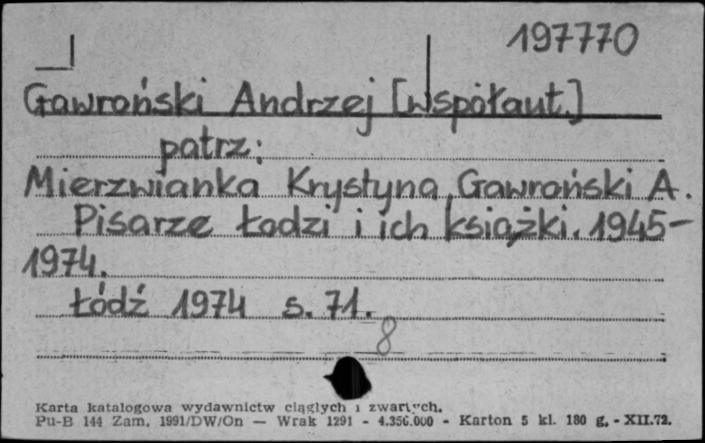 197770
Gawroński Andrzej [współaut.]
patrz:
Mierzwianka Krystyna, Gawroński A.
Pisarze Łodzi i ich książki. 1945-
1974.
Łódź 1974 s. 71.
8
Karta katalogowa wydawnictw ciągłych i zwartych.
Pu-B 144 Zam. 1991/DW/On — Wrak 1291 - 4.356.000 - Karton 5 kl. 180 g. - XII.72.